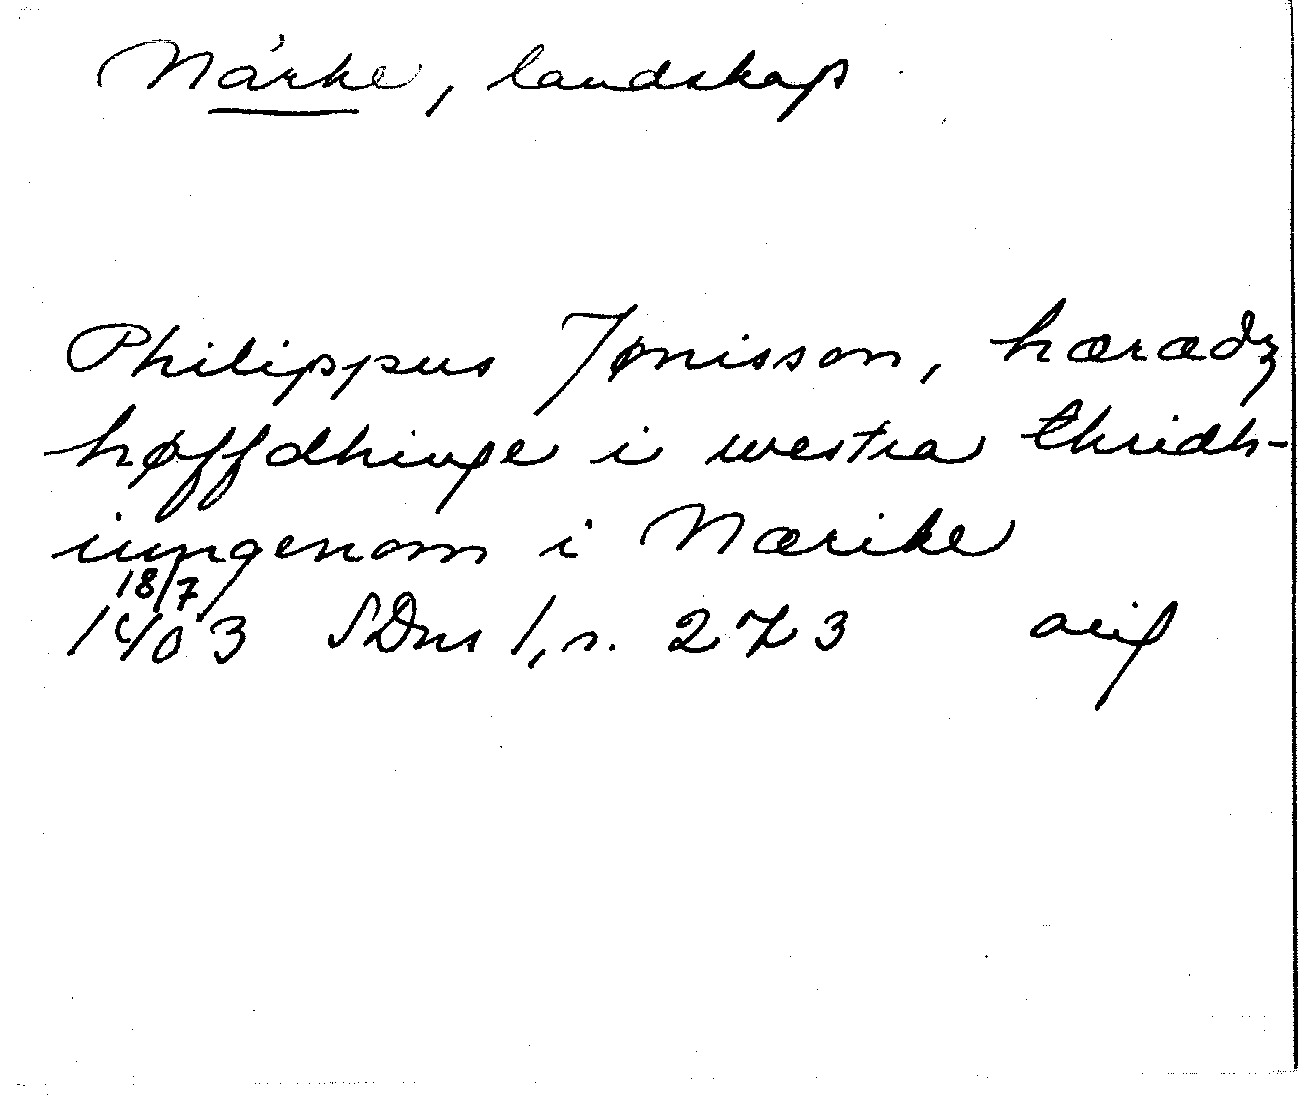 Närke, landskap
Philippus Jønisson, hæradz
høffdhinge i westra thridh-
iungenom i Nærike
18/7
1403 SDns 1, s. 273 orig